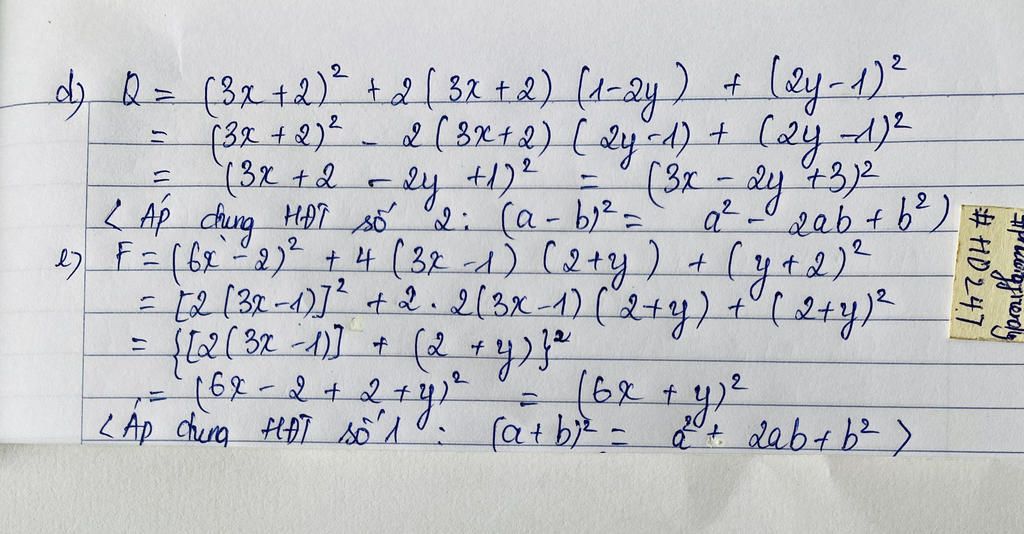 d) Q = (3x + 2)² + 2 (3x + 2) (1 - 2y) + (2y - 1)²
= (3x + 2)² - 2 (3x + 2) (2y - 1) + (2y - 1)²
= (3x + 2 - 2y + 1)² = (3x - 2y + 3)²
< Áp dụng HĐT số 2: (a - b)² = a² - 2ab + b² )
e) F = (6x - 2)² + 4 (3x - 1) (2 + y) + (y + 2)²
= [2 (3x - 1)]² + 2 . 2 (3x - 1) (2 + y) + (2 + y)²
= {[2 (3x - 1)] + (2 + y)}²
= (6x - 2 + 2 + y)² = (6x + y)²
< Áp dụng HĐT số 1 : (a + b)² = a² + 2ab + b² >
#HD247